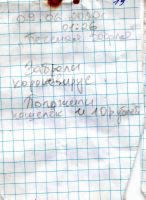 19
09.06.2030г
01:26
Забрали
коронавирус
Положили
кошелёк и 10 рублей